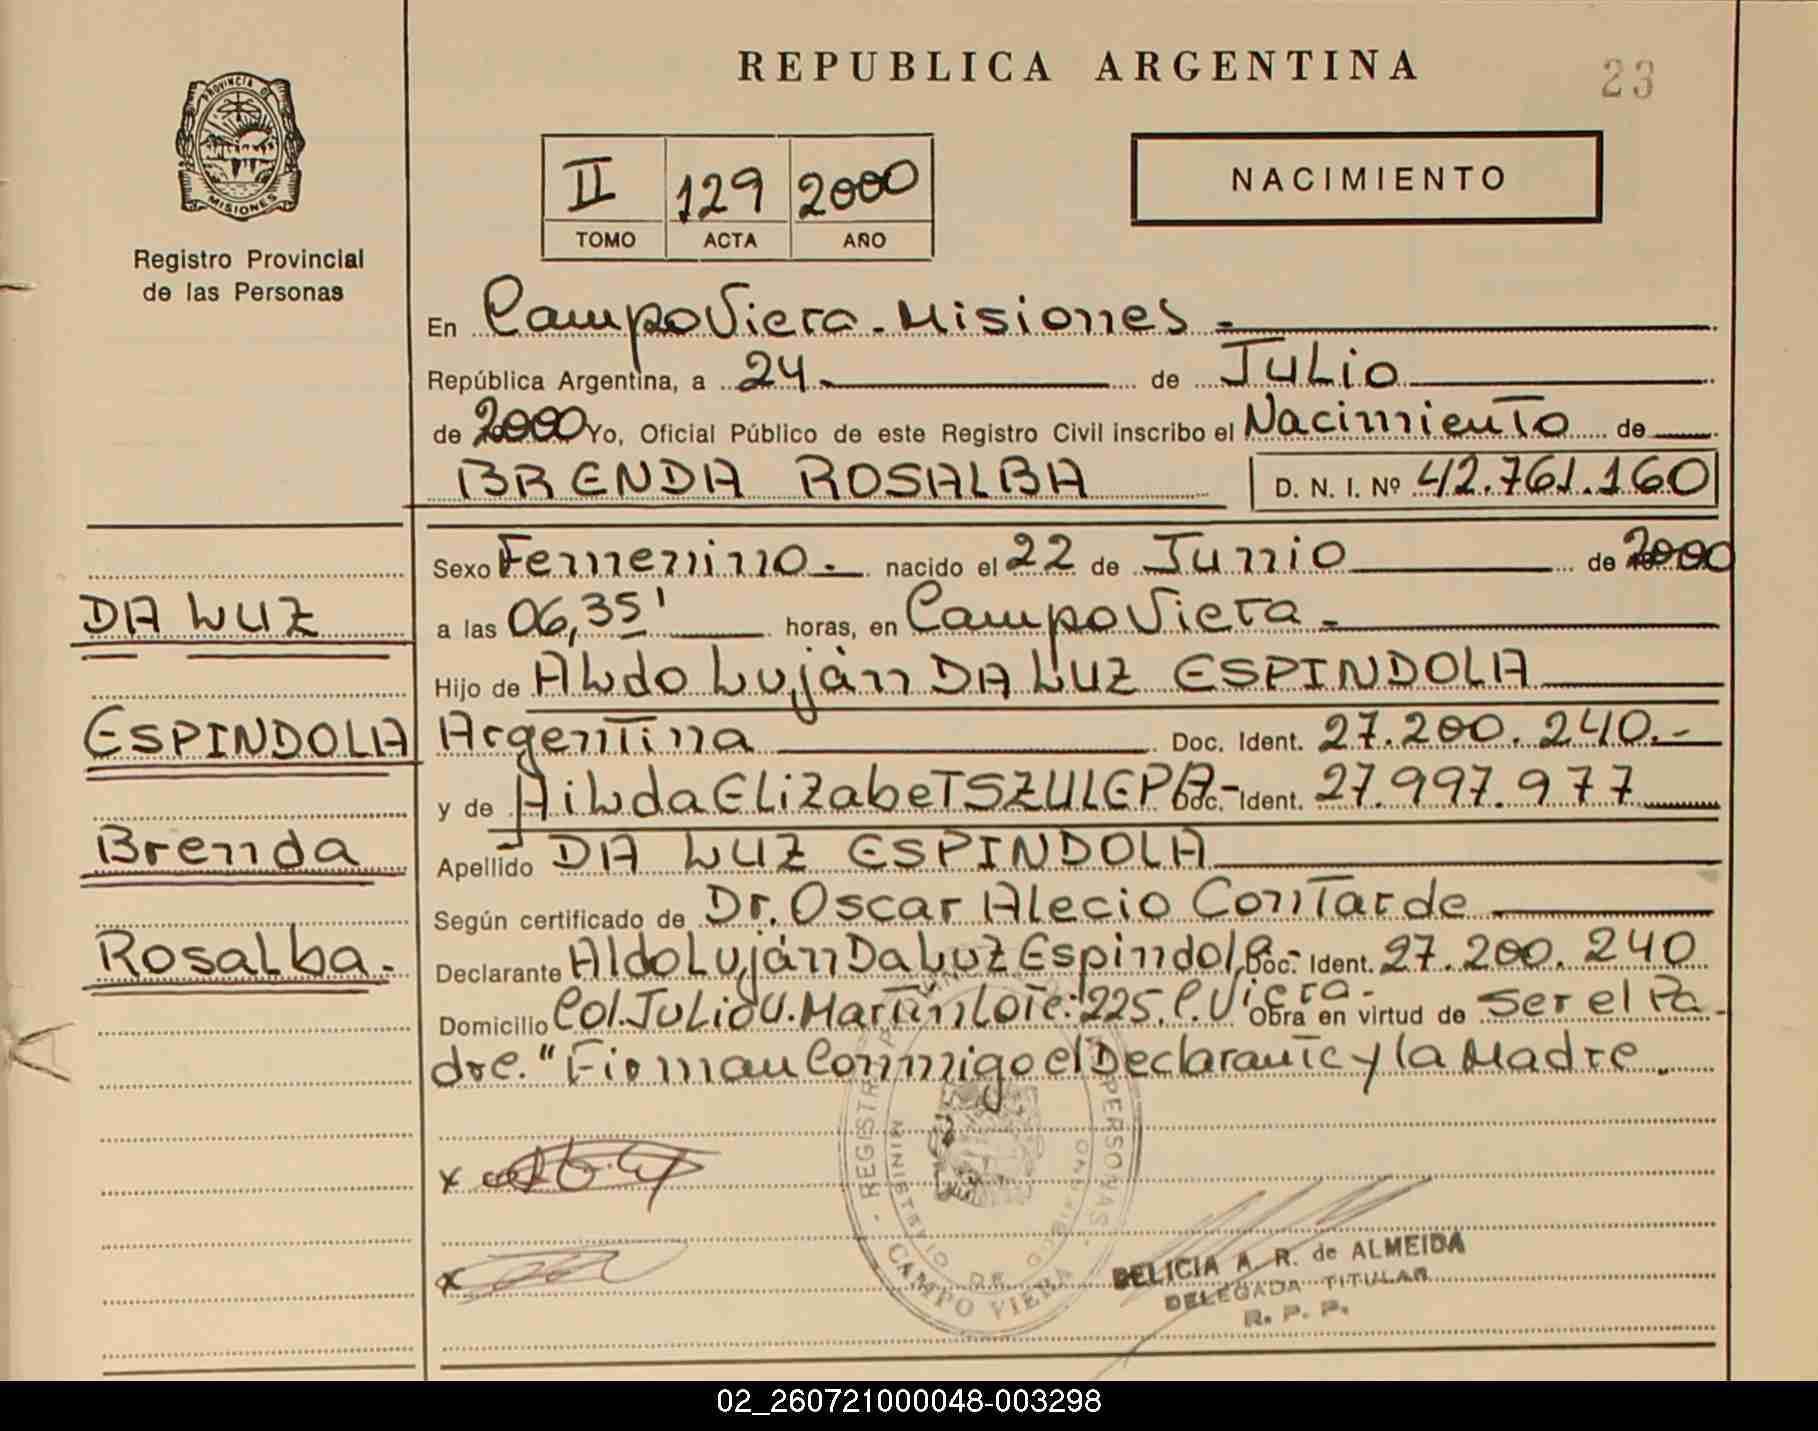 REPUBLICA ARGENTINA
23
PROVINCIA DE
MISIONES
Registro Provincial
de las Personas
II 129 2000
TOMO ACTA AÑO
NACIMIENTO
En Campo Viera - Misiones -
República Argentina, a 24 de Julio
de 2000 Yo, Oficial Público de este Registro Civil inscribo el Nacimiento de
BRENDA ROSALBA D. N. I. Nº 42.761.160
Sexo Femenino. nacido el 22 de Junio de 2000
a las 06,35' horas, en Campo Viera -
Hijo de Aldo Luján DA LUZ ESPINDOLA
Argentina Doc. Ident. 27.200.240.-
y de Hilda Elizabet SZULEPA- Doc. Ident. 27.997.977
Apellido DA LUZ ESPINDOLA
Según certificado de Dr. Oscar Alecio Contarde
Declarante Aldo Luján Da Luz Espindola- Doc. Ident. 27.200.240
Domicilio Col. Julio U. Martin Lote: 225. C. Viera- Obra en virtud de ser el Pa-
dre." Firman Conmigo el Declarante y la Madre.
DA LUZ
ESPINDOLA
Brenda
Rosalba.-
x
x
REGISTRO PERSONAS
MINISTERIO DE GOBIERNO
CAMPO VIERA
DELICIA A. R. de ALMEIDA
DELEGADA TITULAR
R. P. P.
02_260721000048-003298